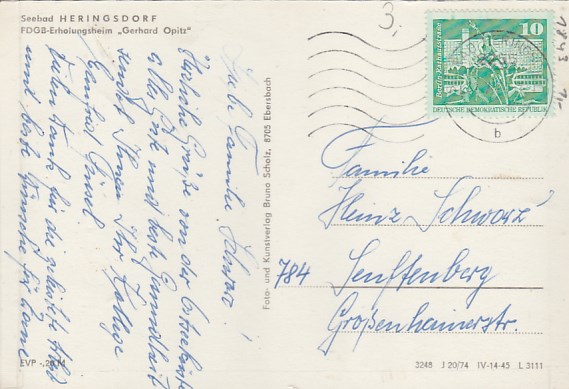 Seebad HERINGSDORF
FDGB-Erholungsheim „Gerhard Opitz"
3,
10
Berlin, Rathausstrasse
DEUTSCHE DEMOKRATISCHE REPUBLIK
b
1843
Liebe Familie Schwarz!
Herzliche Grüße von der Ostseeküste
alles Gute und beste Gesundheit
sendet Ihnen Ihr Kollege
Manfred
Vielen Dank für die
und beste Wünsche für
Foto- und Kunstverlag Bruno Scholz, 8705 Ebersbach
Familie
Heinz Schwarz
784 Senftenberg
Großenhainerstr.
EVP -,20 M
3248 J 20/74 IV-14-45 L 3111